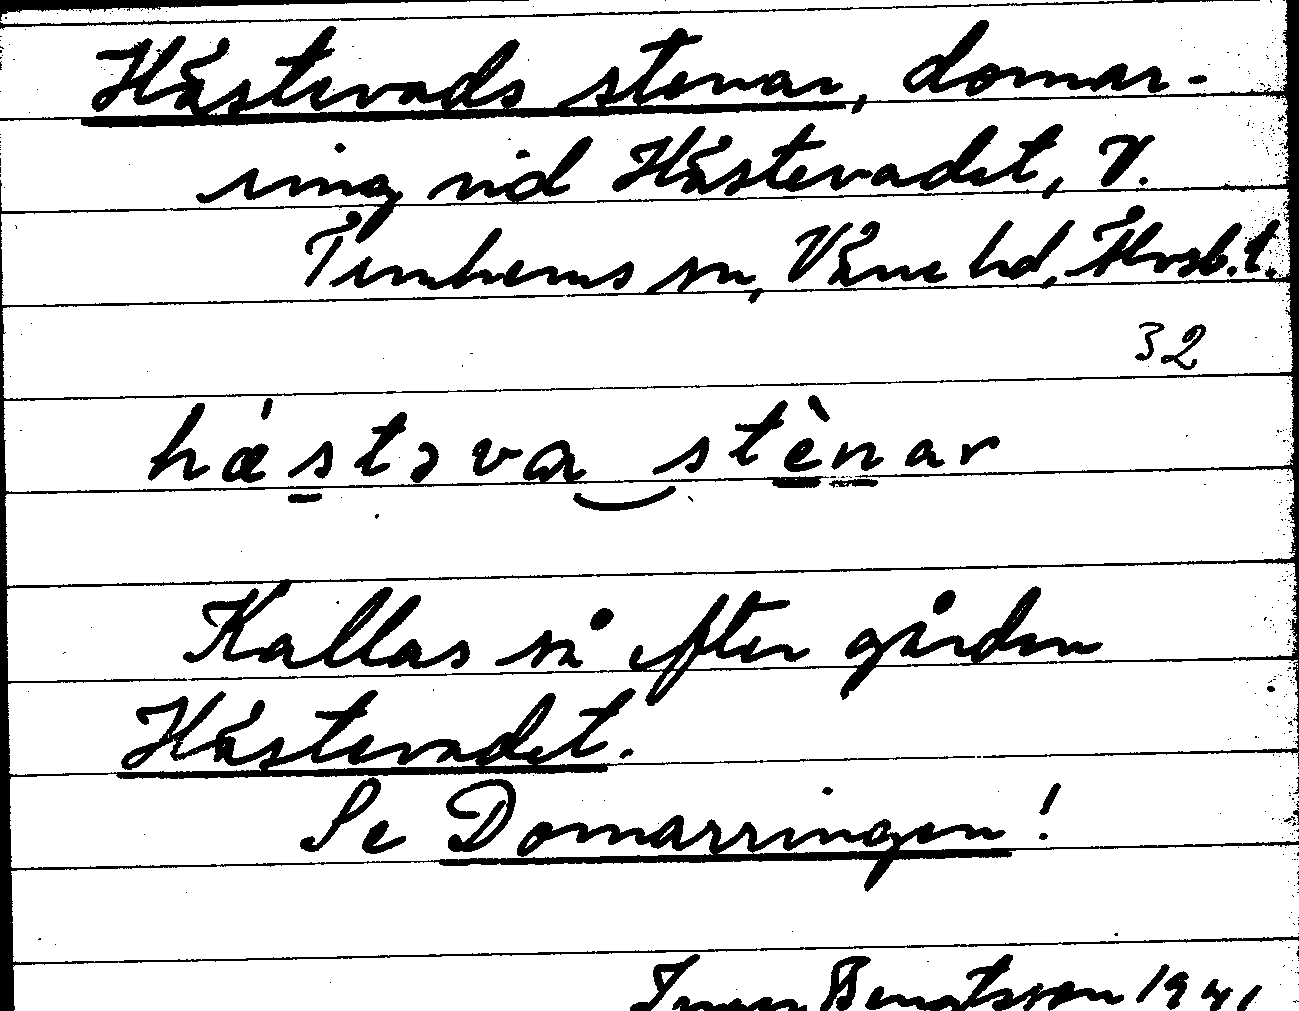 Hästevads stenar, domar-
ring vid Hästevadet, V.
Tunhems sn, Väne hd, Älvsb. l.
32
hǽstəva stènar
Kallas så efter gården
Hästevadet.
Se Domarringen!
Bengtsson 1941